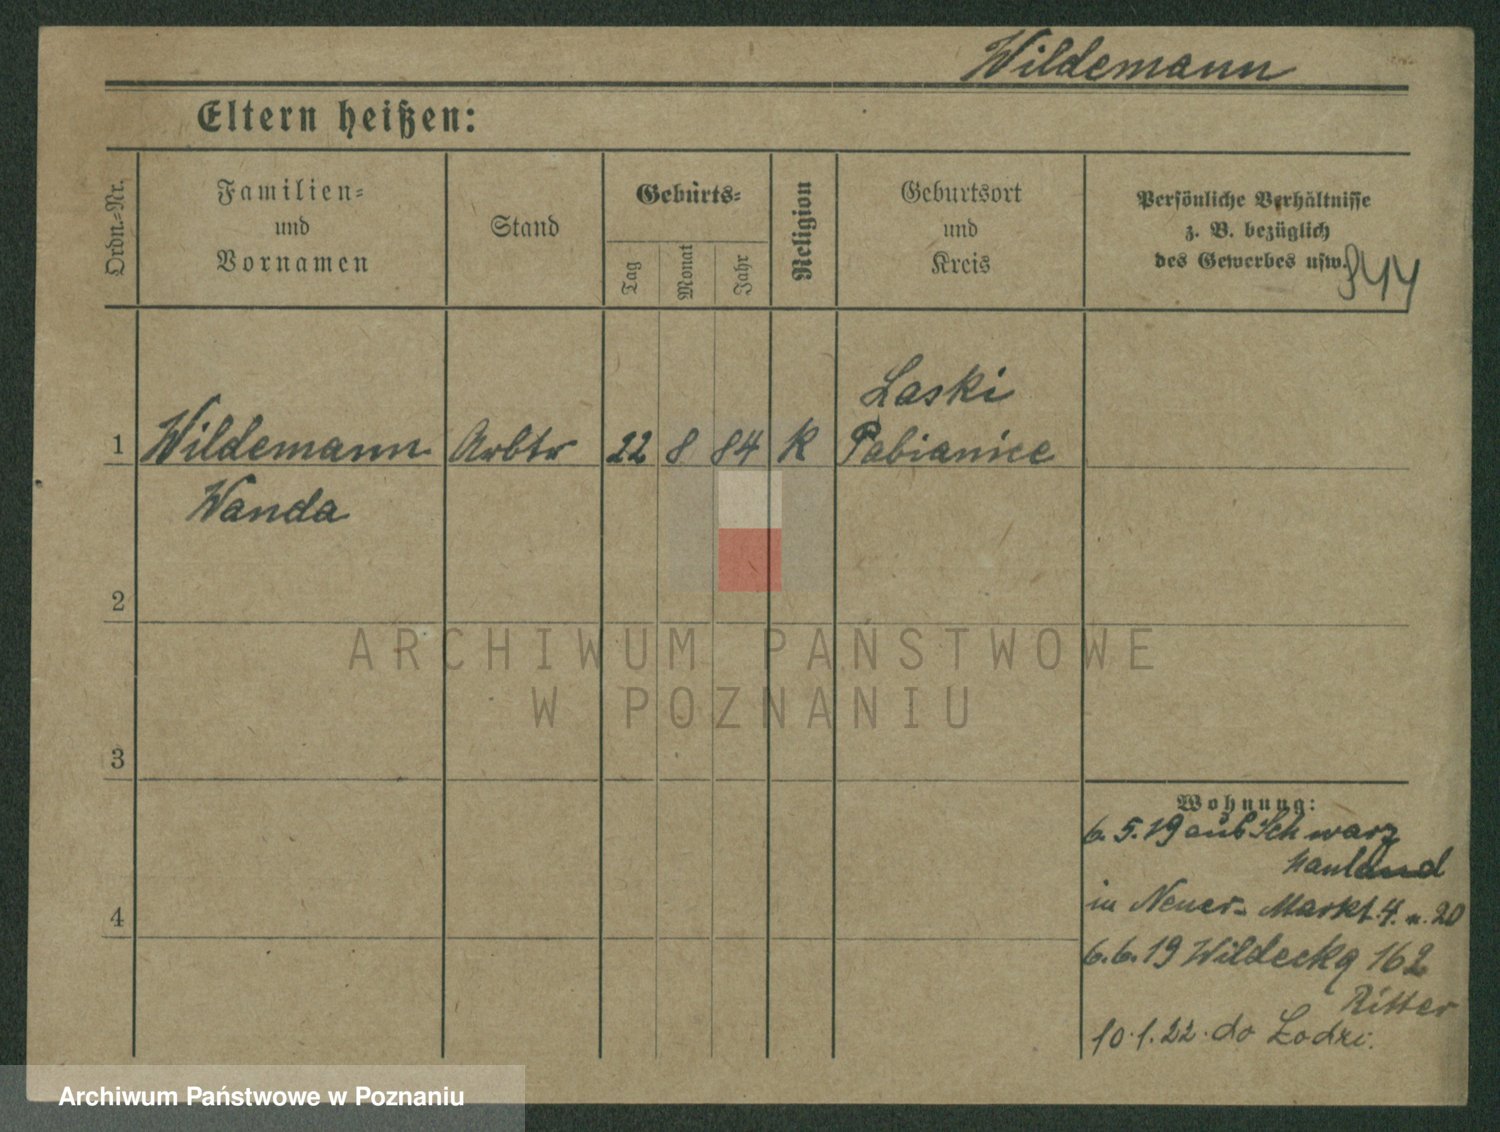 Wildemann
Eltern heißen:
Ordn.-Nr.
Familien-
und
Vornamen
Stand
Geburts-
Tag
Monat
Jahr
Religion
Geburtsort
und
Kreis
Persönliche Verhältnisse
z. B. bezüglich
des Gewerbes usw.
944
Laski
1 Wildemann Arbtr 22 8 84 K Pabianice
Wanda
2
3
4
ARCHIWUM PAŃSTWOWE
W POZNANIU
Wohnung:
6.5.19 aus Schwarz
hauland
in Neuer- Markt 4. n. 20
6.6.19 Wildeckg 162
Ritter
10.1.22 do Łodzi.
Archiwum Państwowe w Poznaniu